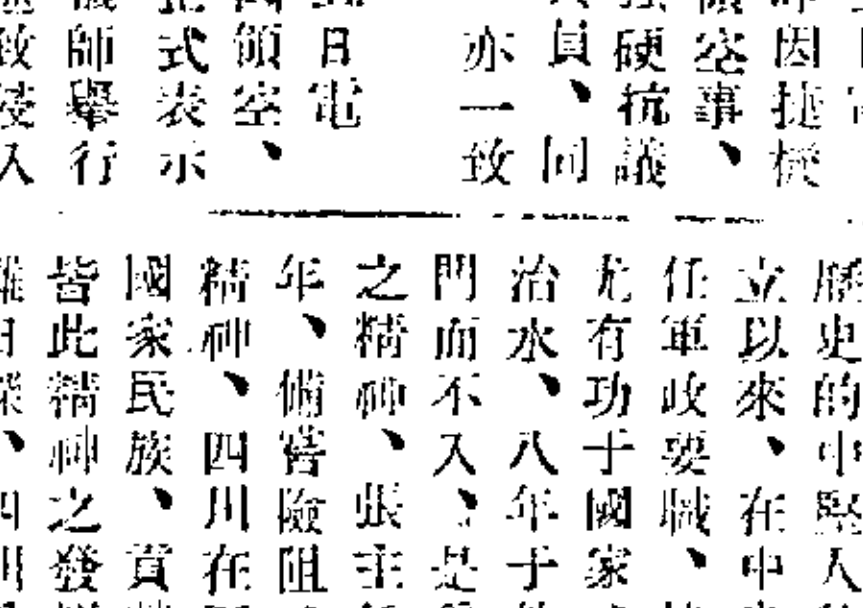 因捷機
領空事、
硬抗議
員、同
亦一致
日電
領空、
式表示
師舉行
致侵入
歷史的中堅人
立以來、在中
任軍政要職、
尤有功于國家
治水、八年于
門而不入、是
之精神、張主
年、備嘗險阻
精神、四川在
國家民族、貢
皆此精神之發